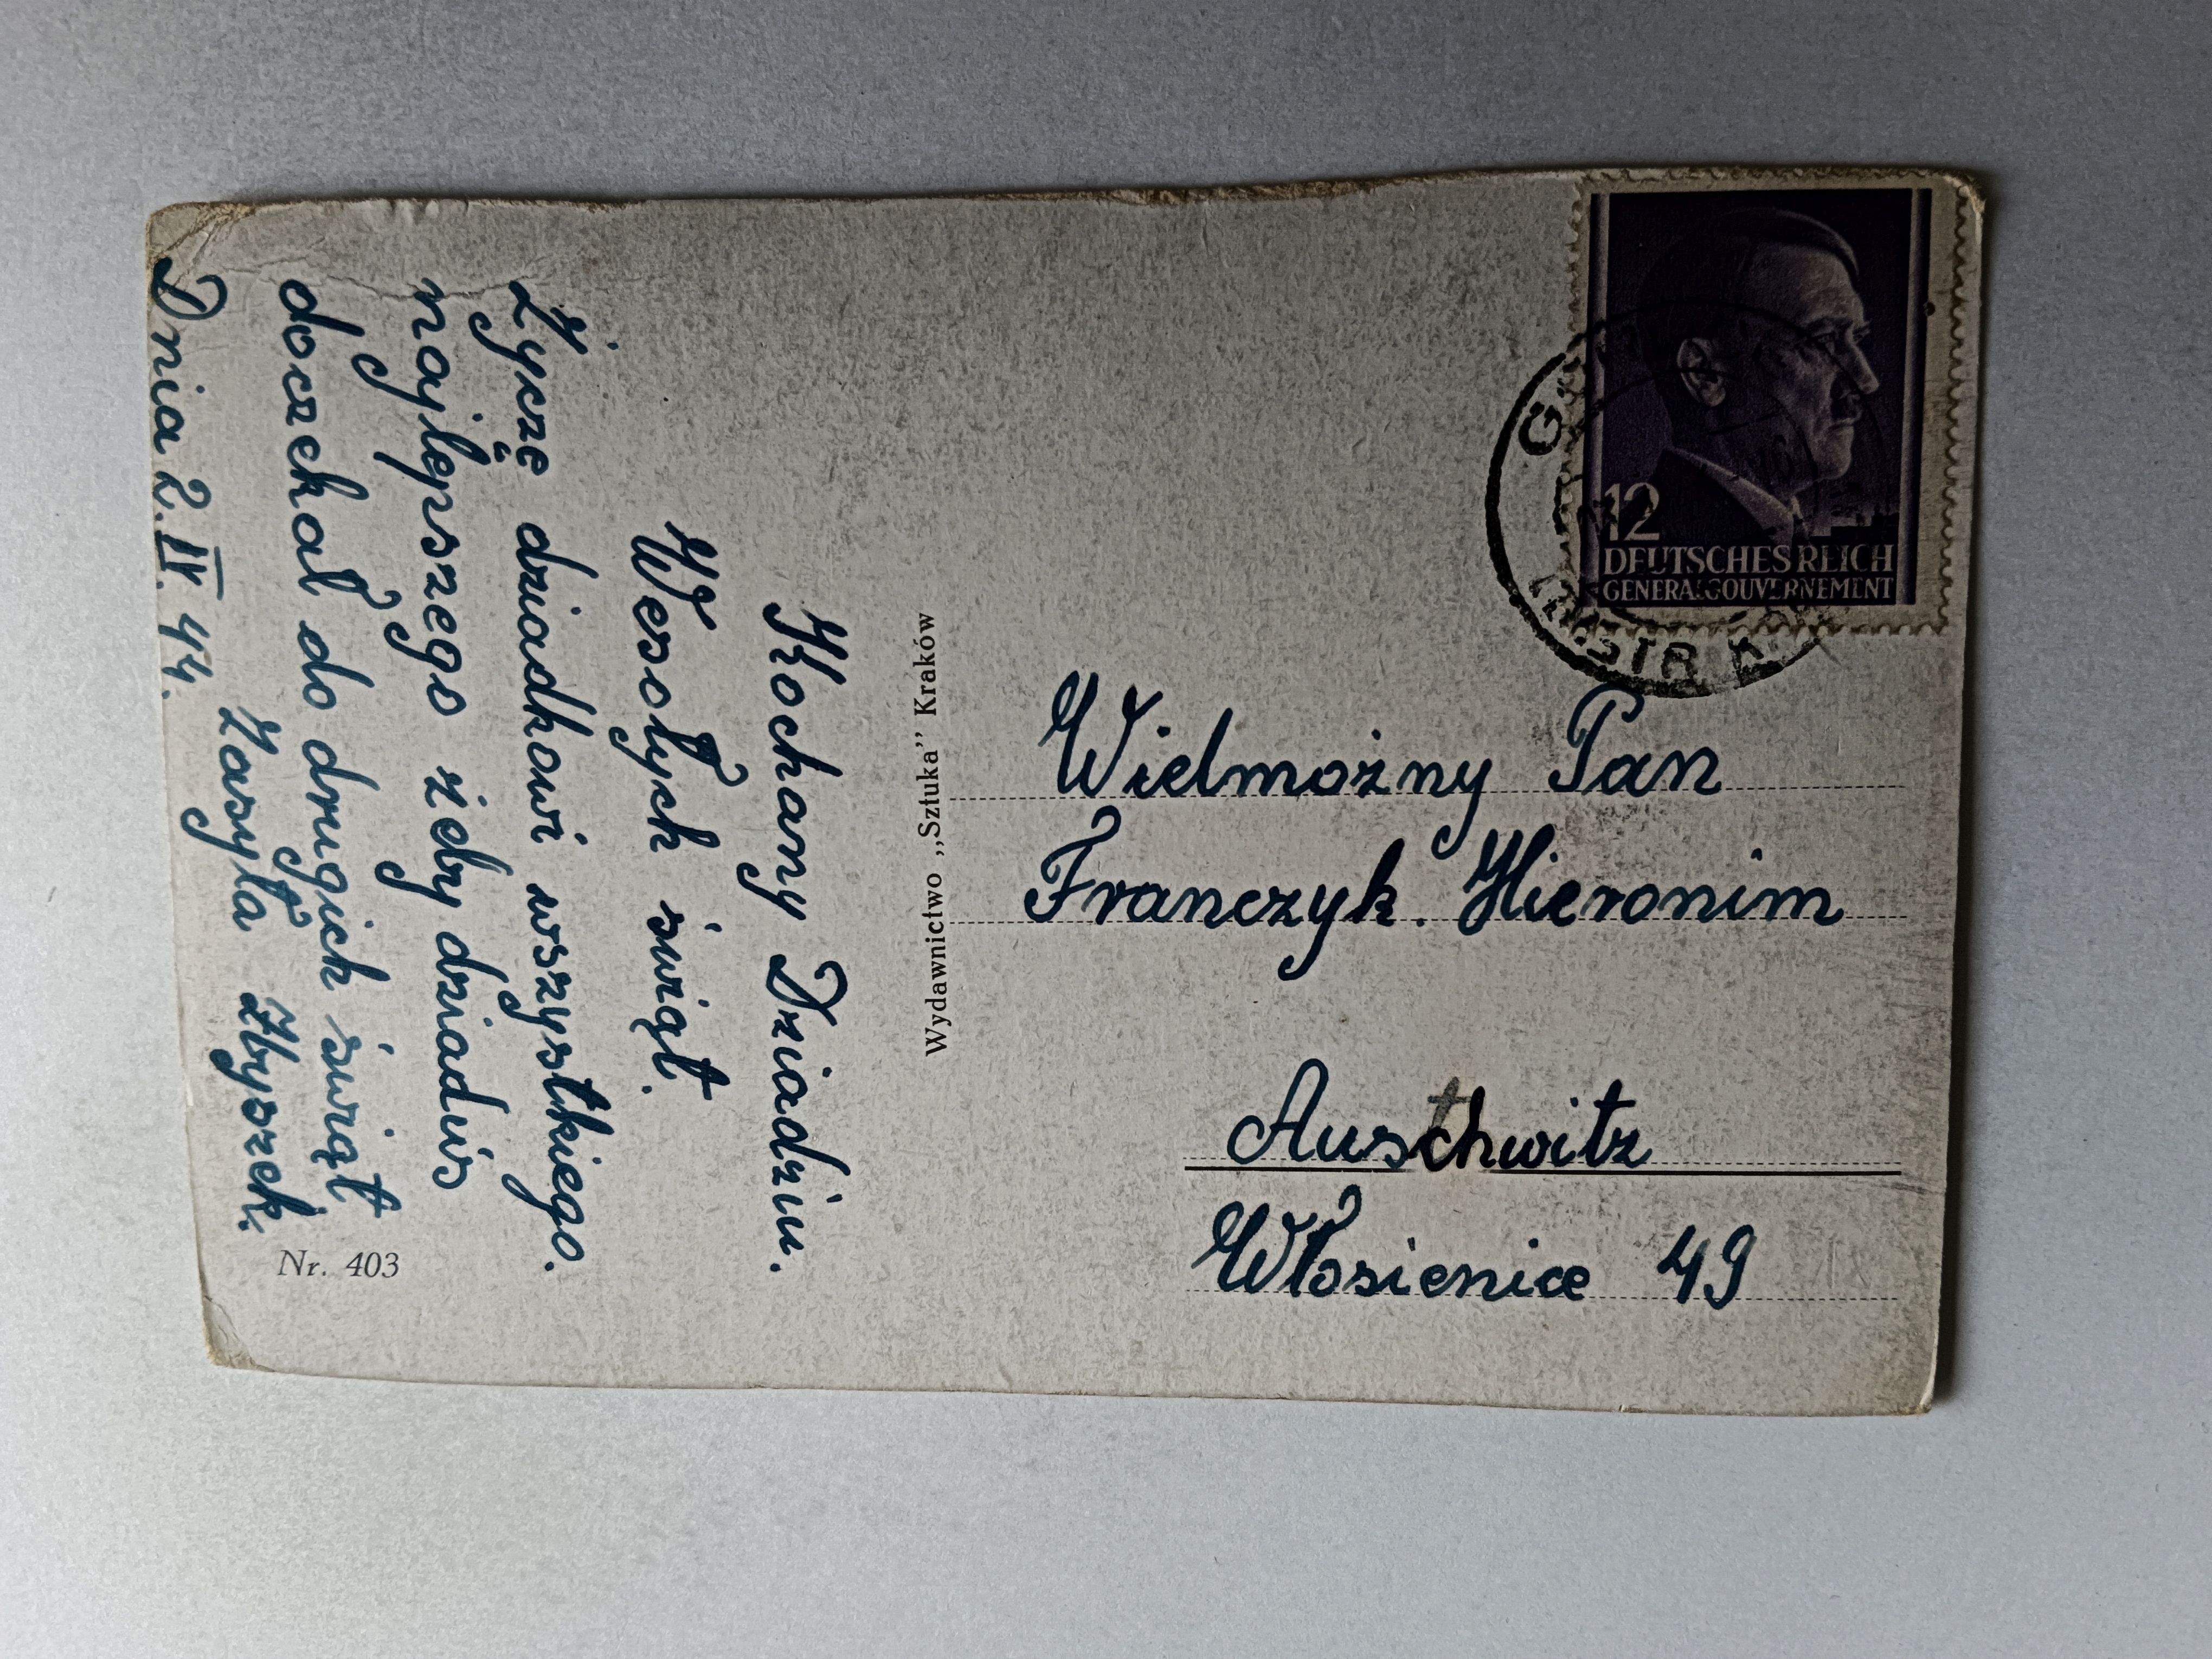 Kochany Dziadziu.
Wesołych świąt.
Życzę dziadkowi wszystkiego
najlepszego żeby dziaduś
doczekał do drugich świąt
Zasyła Zbyszek.
Dnia 2.IV.44.
Nr. 403
Wydawnictwo „Sztuka” Kraków
12
DEUTSCHES REICH
GENERALGOUVERNEMENT
Wielmożny Pan
Franczyk. Hieronim
Auschwitz
Włosienice 49